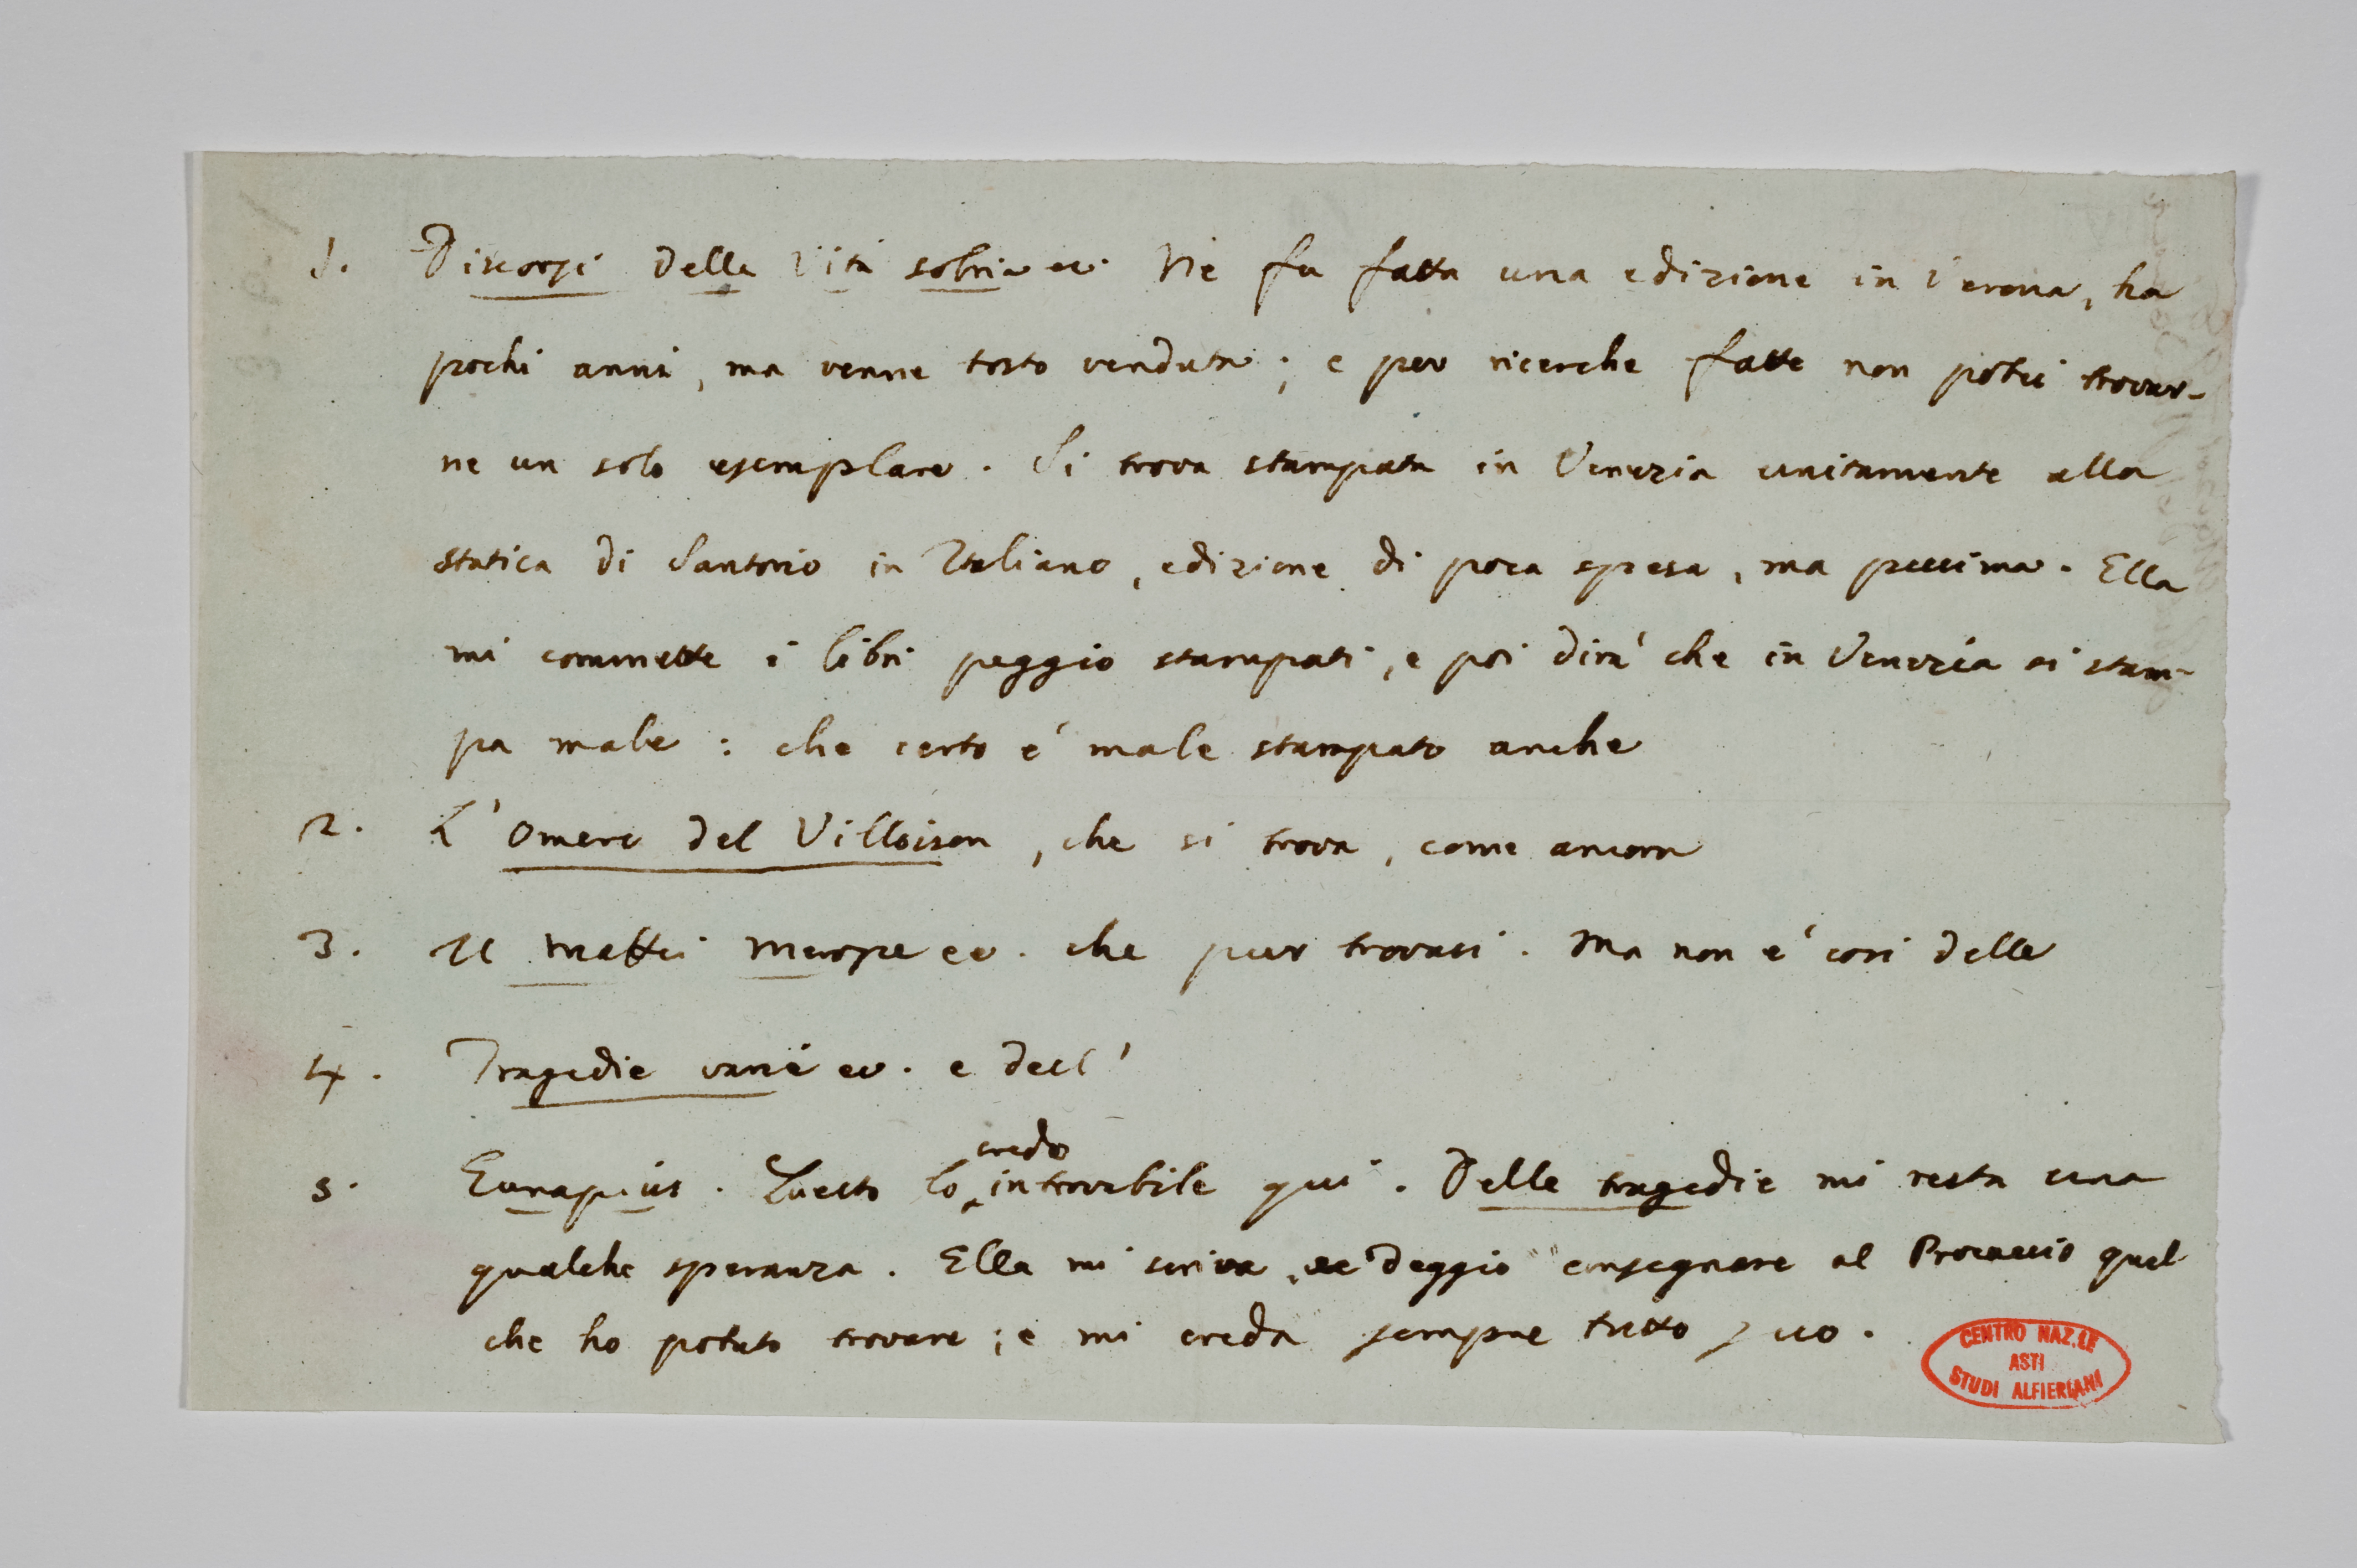 1. Discorsi della Vita sobria ec. Ne fu fatta una edizione in Verona, ha
pochi anni, ma venne tosto venduta; e per ricerche fatte non potei trovar-
ne un solo esemplare. Si trova stampata in Venezia unitamente alla
Statica di Santorio in Italiano, edizione di poca spesa, ma pessima. Ella
mi commette i libri peggio stampati, e poi dirà che in Venezia si stam-
pa male: che certo è male stampato anche
2. L'Omero del Villoison, che si trova, come ancora
3. Il Maffei Merope ec. che pur trovasi. Ma non è così delle
4. Tragedie varie ec. e dell'
5. Eunapius. Questo lo credo introvabile qui. Delle tragedie mi resta una
qualche speranza. Ella mi scriva, se deggio consegnare al Procaccio quel
che ho potuto trovare; e mi creda sempre tutto suo.
CENTRO NAZ.LE
ASTI
STUDI ALFIERIANI